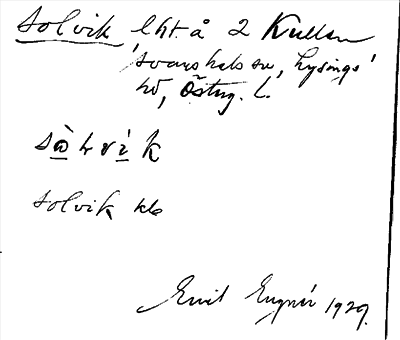 Solvik lht. å 2 Kullen
Svanshals sn, Lysings
hd, Östg. L.
sòlvìk
Solvik
Emil Engnér 1929.